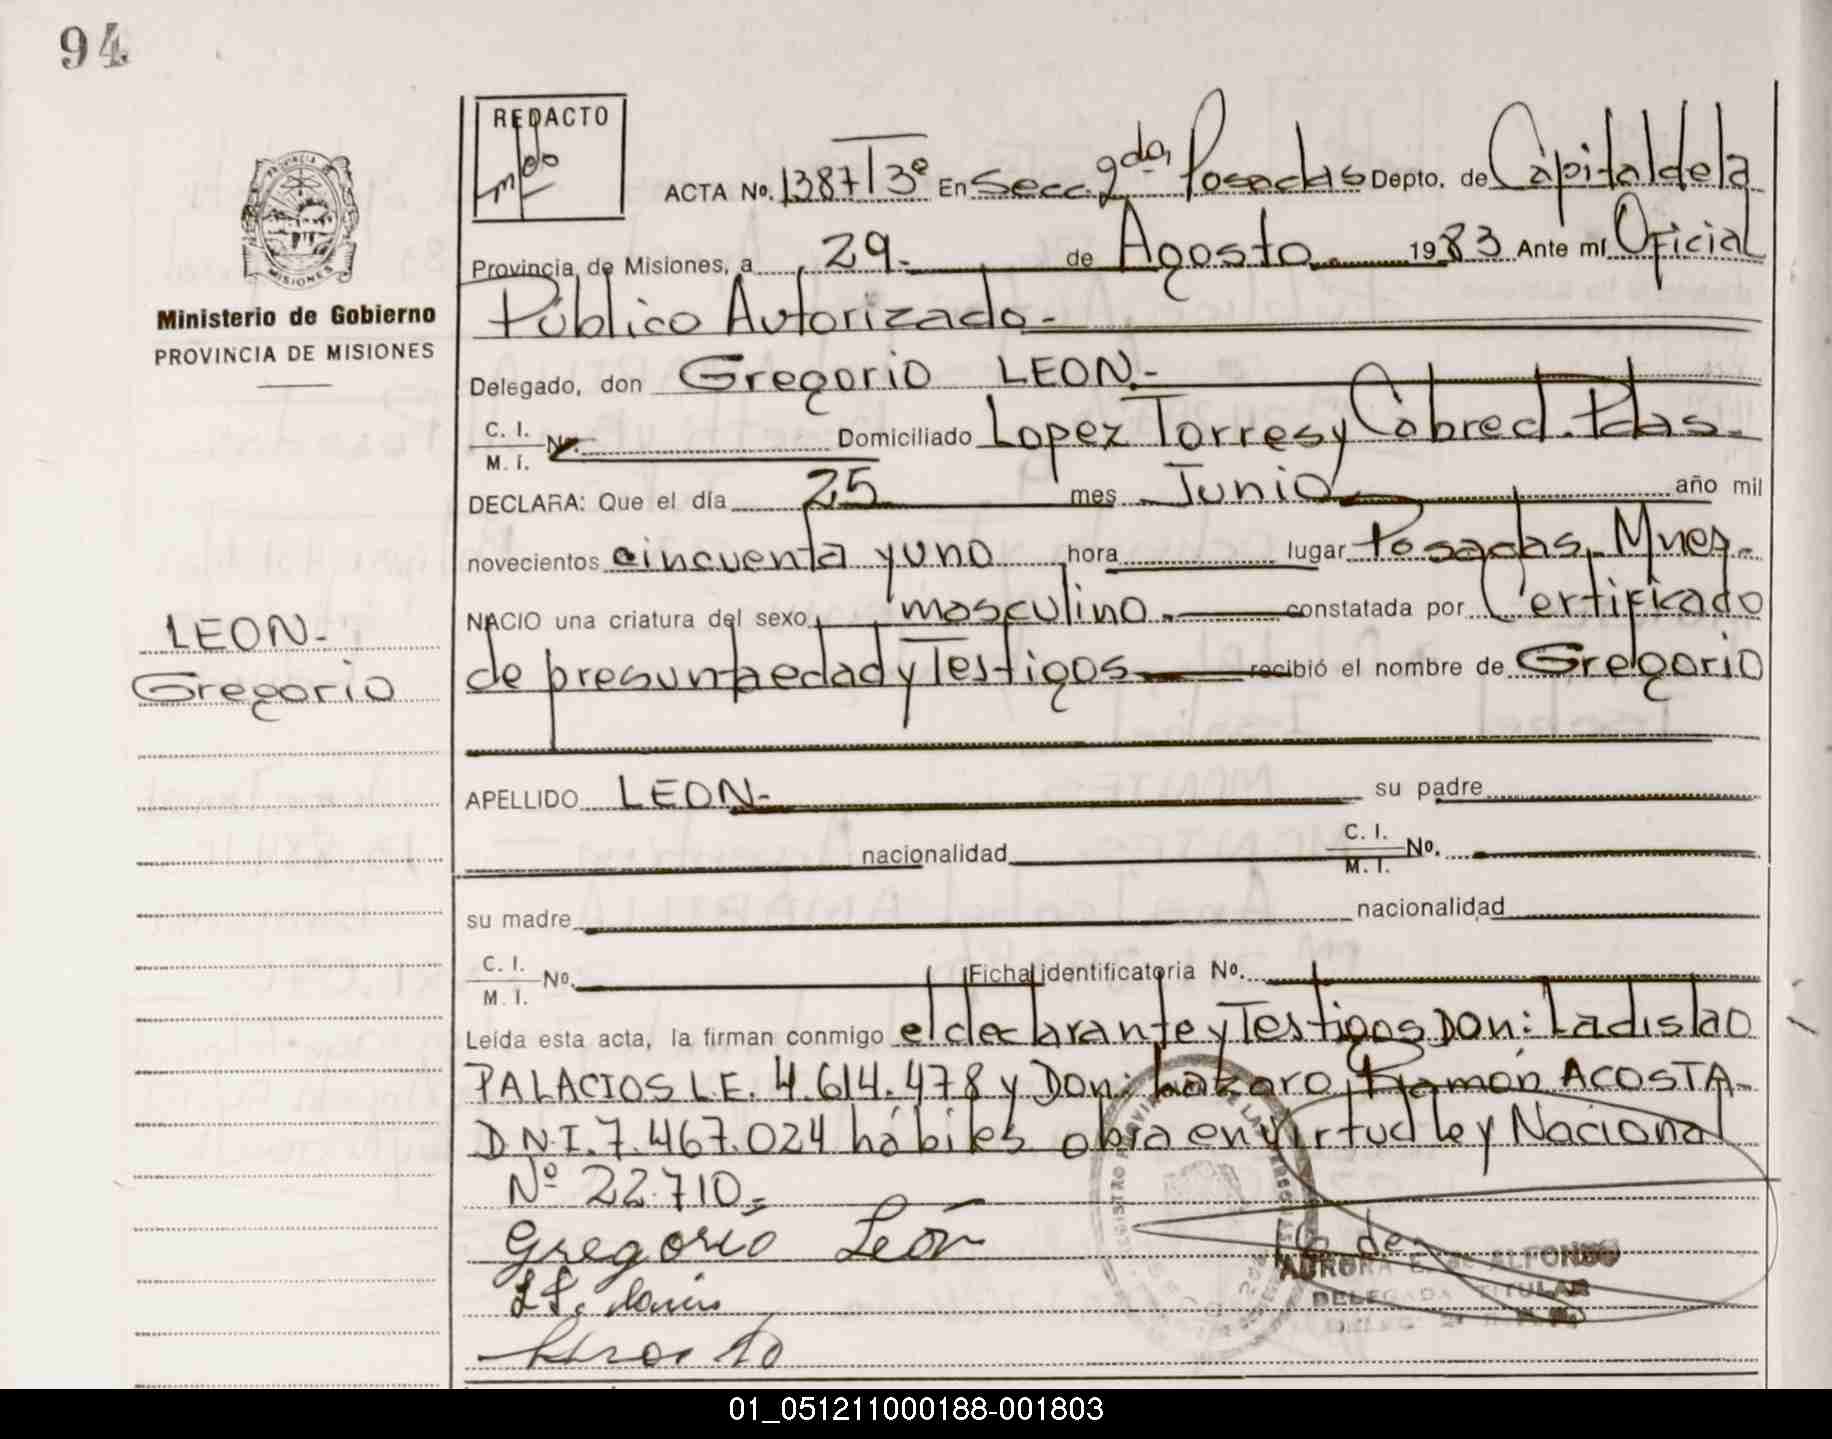 94
REDACTO
ACTA No. 1387 T 3º En Secc. 2da, Posadas Depto. de Capital de la
Provincia de Misiones, a 29.- de Agosto.- 1983 Ante mí Oficial
Público Autorizado.-
MISIONES
Ministerio de Gobierno
PROVINCIA DE MISIONES
Delegado, don Gregorio LEON.-
C. I.
M. I. No. Domiciliado Lopez Torres y Cabred. Pdas.-
DECLARA: Que el día 25 mes Junio año mil
novecientos cincuenta y uno hora lugar Posadas, Mnes.-
NACIO una criatura del sexo masculino.- constatada por Certificado
de presunta edad y Testigos recibió el nombre de Gregorio
LEON-
Gregorio
APELLIDO LEON- su padre
nacionalidad C. I.
M. I. No.
su madre nacionalidad
C. I.
M. I. No. Ficha identificatoria No.
Leída esta acta, la firman conmigo el declarante y Testigos Don: Ladislao
PALACIOS L.E. 4.614.478 y Don: Lazaro Ramón ACOSTA-
D.N.I. 7.467.024 hábiles obra en virtud Ley Nacional
Nº 22.710.-
Gregorio León
AURORA E. de ALFONSO
DELEGADA TITULAR
01_051211000188-001803